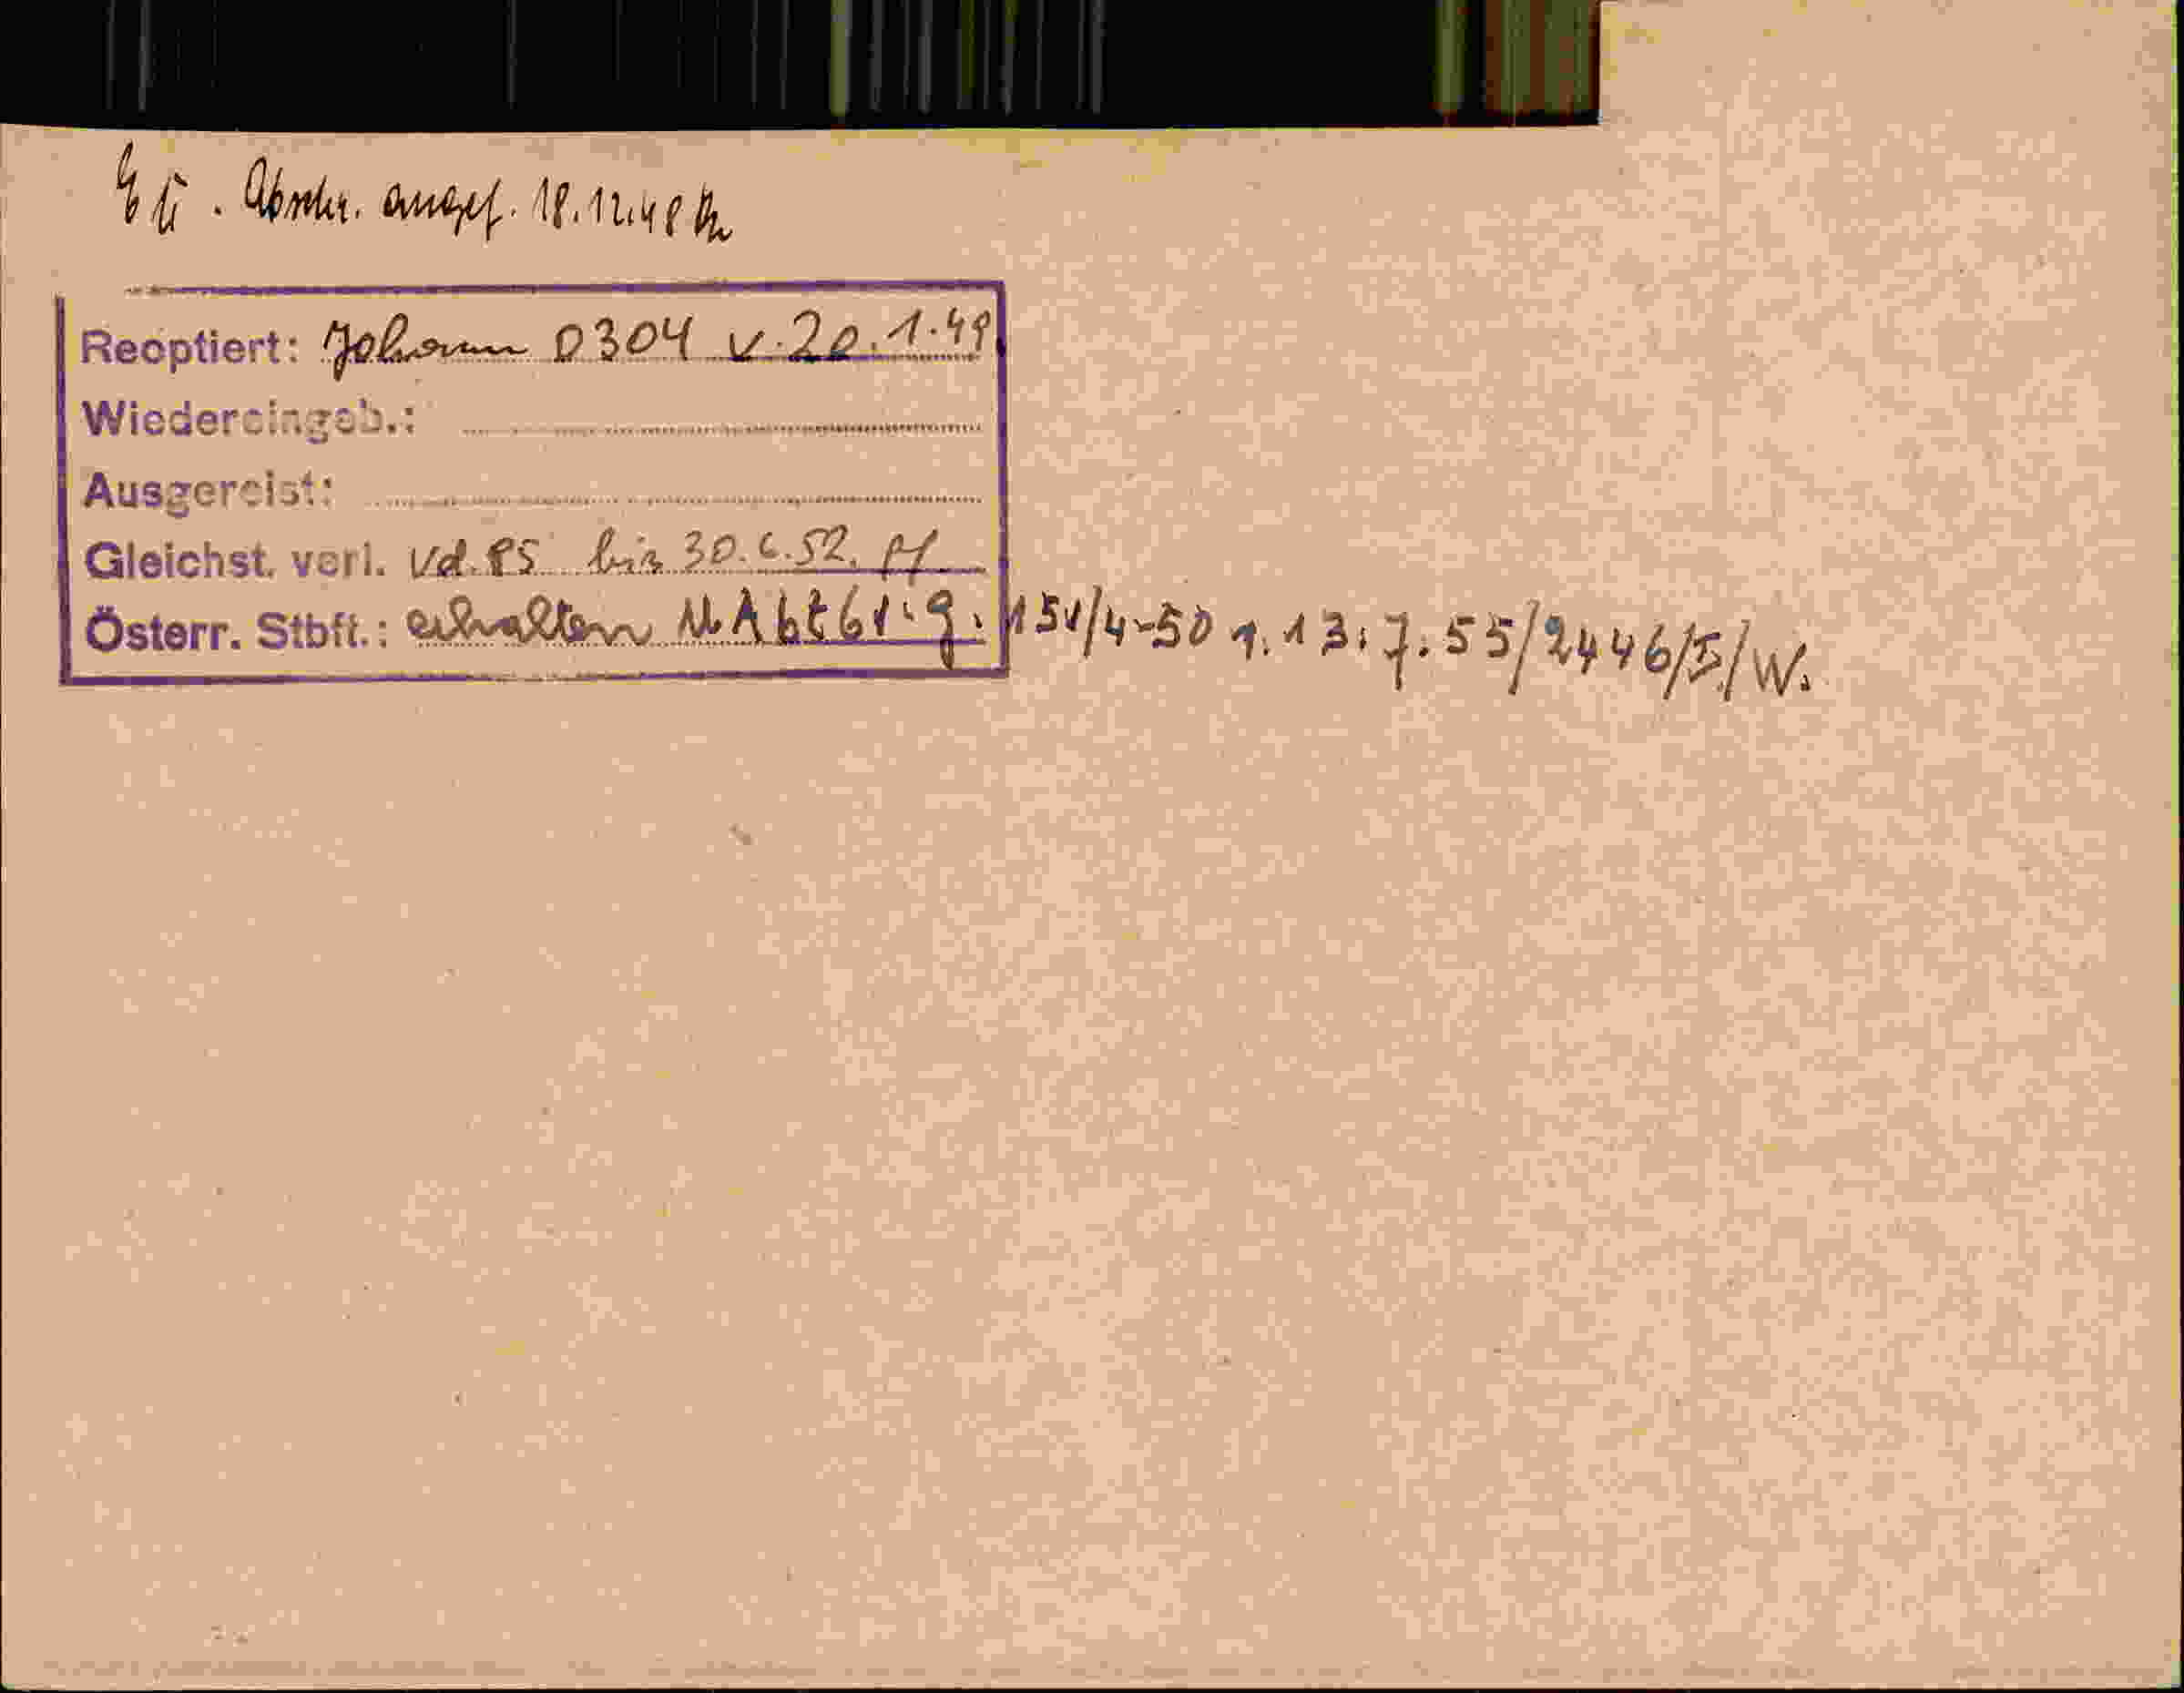 Abschr. angef. 18.12.48
Reoptiert: Johann 0304 v. 20.1.49
Wiedereingeb.:
Ausgereist:
Gleichst. verl. vd. PS bis 30.6.52.
Österr. Stbft.: erhalten M Abt 61-9. 151/4-50 v. 13.7.55/2446/5/W.